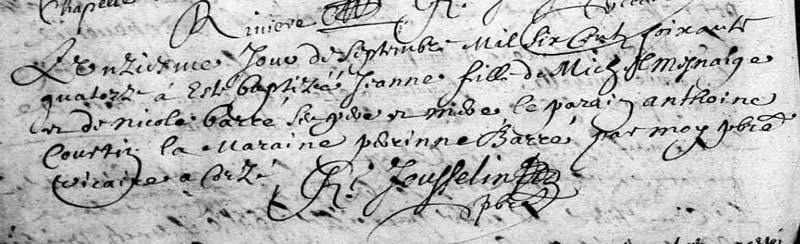 Chapelle
Riviere
Lonziesme Jour de Septembre Mil Six Cent soixante
quatorze á Esté baptizéé Jeanne fille de Michel mesnaige
et de nicole barré Ses pere et mere le parain anthoine
Courtin la Maraine perinne Barré par moy pbre
vicaire a Corzé
R. Jousselin
pbre